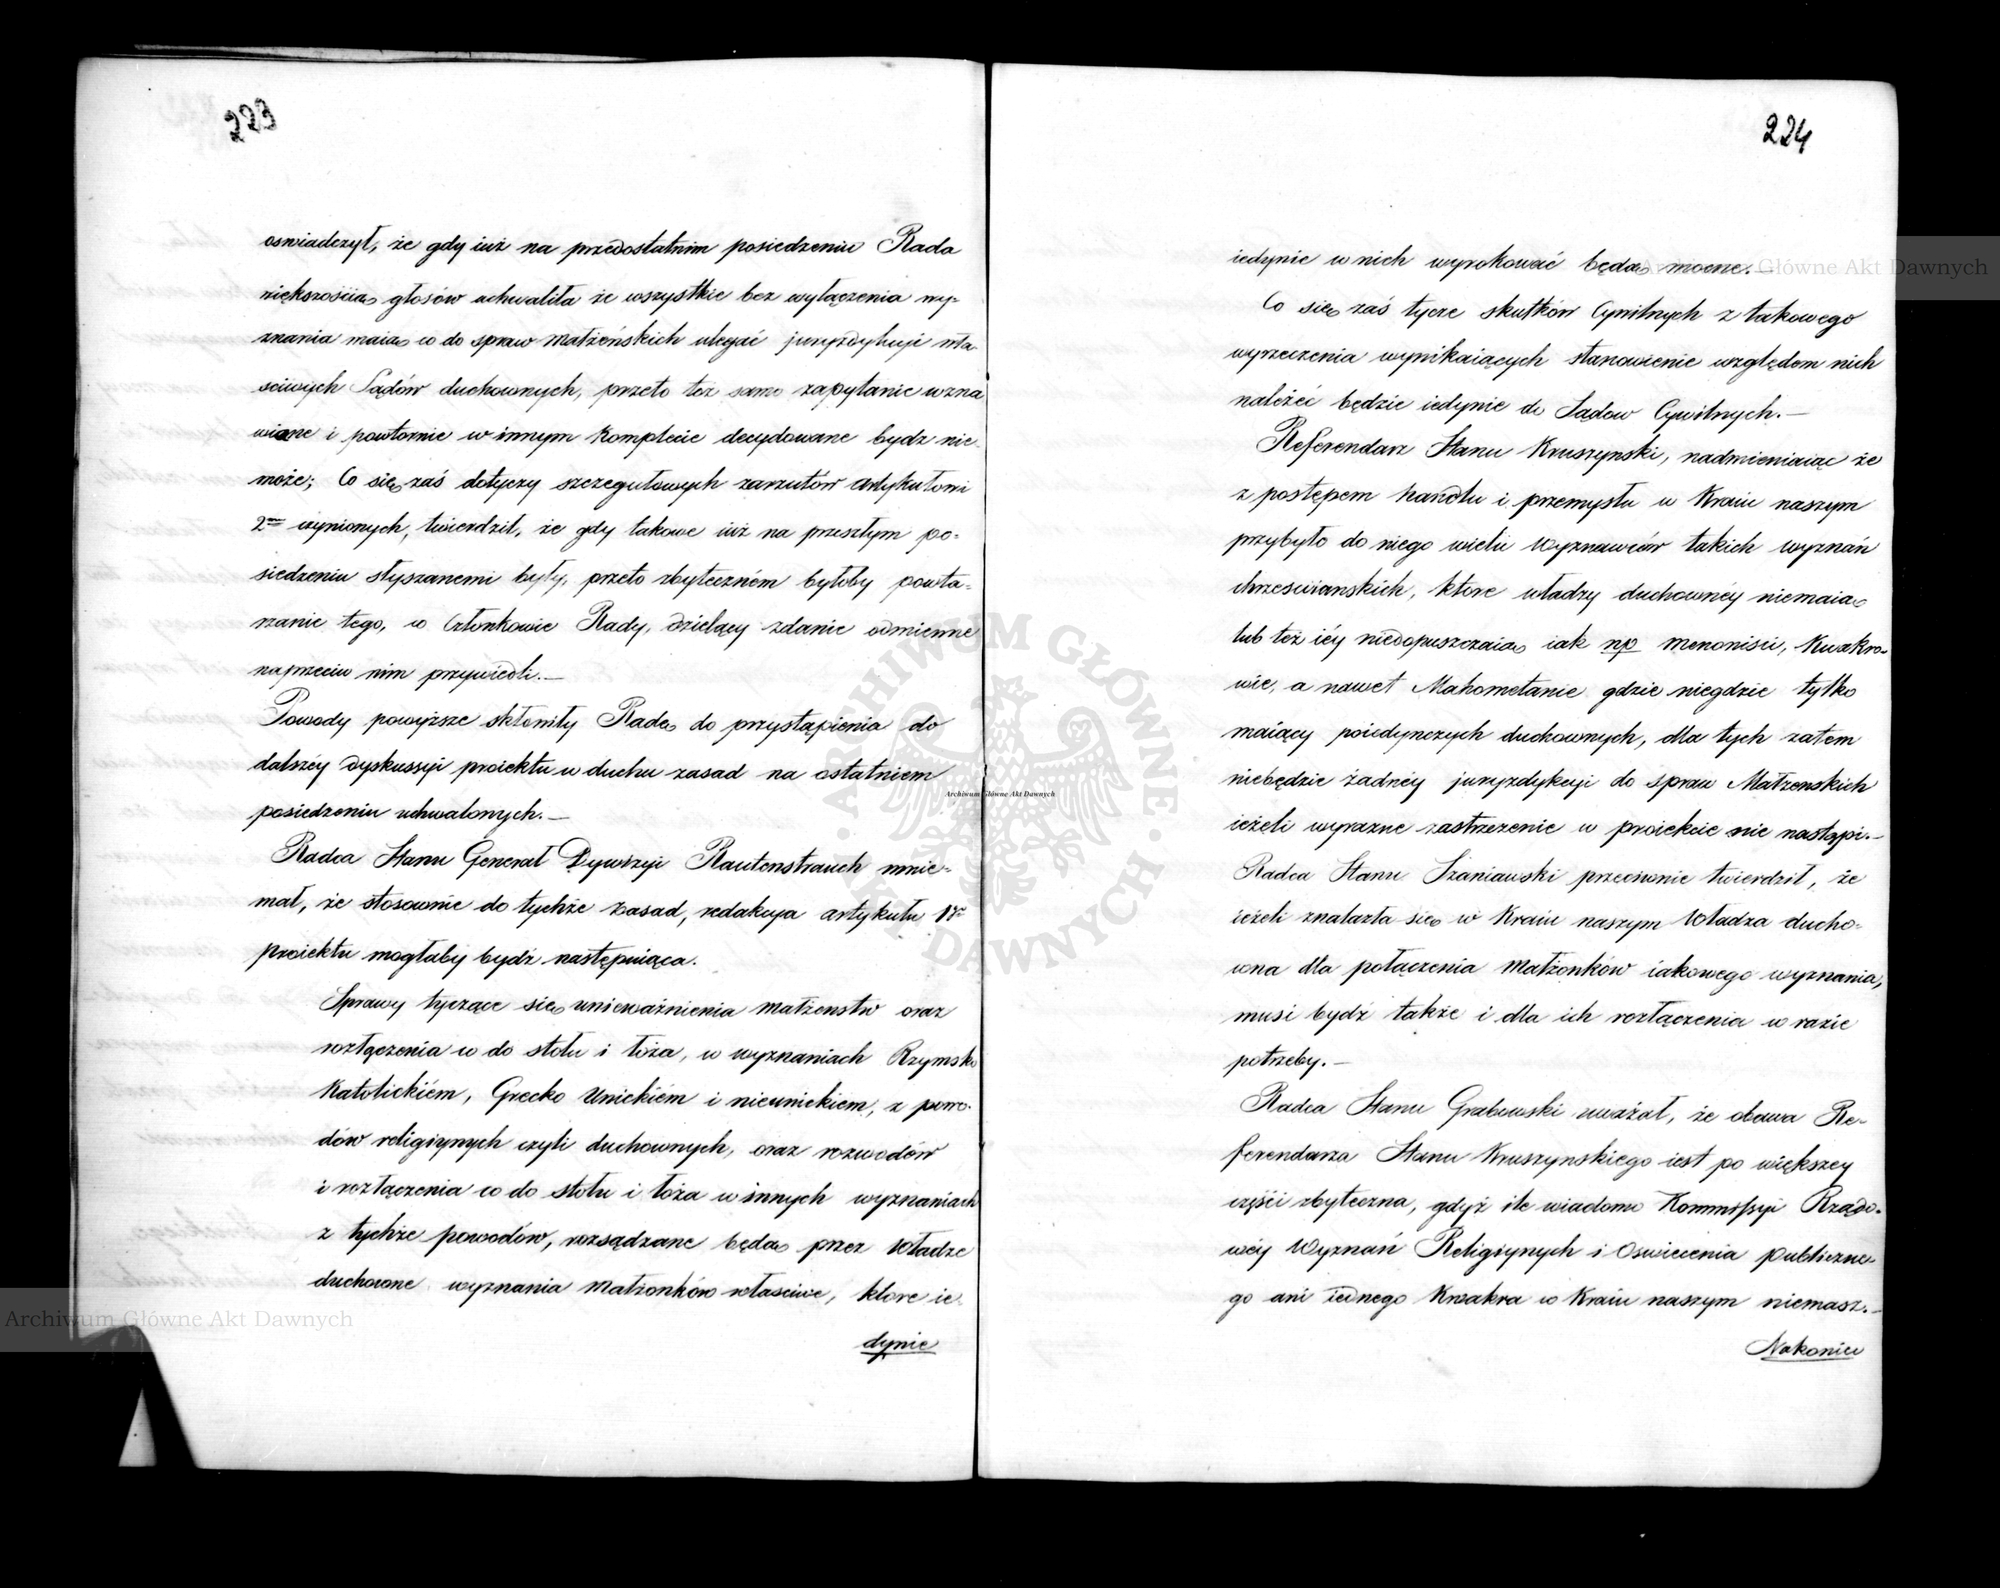 223
oswiadczył, że gdy iuż na przedostatnim posiedzeniu Rada
większością głosów uchwaliła że wszystkie bez wyłączenia wy-
znania maią co do spraw małżeńskich ulegać juryzdykcyi wła-
sciwych Sądów duchownych, przeto toż samo zapytanie wzna
wiane i powtornie w innym Komplecie decydowane bydz nie-
może; Co się zaś dotyczy szczegułowych zarzutów Artykułowi
2mu czynionych, twierdził, że gdy takowe iuż na przeszłym po-
siedzeniu słyszanemi były, przeto zbyteczném byłoby powta-
rzanie tego, co Członkowie Rady, dzielący zdanie odmienne
naprzeciw nim przywiedli.—
Powody powyższe skłoniły Radę do przystąpienia do
dalszéy dyskussyi proiektu w duchu zasad na ostatniem
posiedzeniu uchwalonych.—
Radca Stanu Generał Dywizyi Rautenstrauch mnie-
mał, że stosownie do tychże zasad, redakcya artykułu 1go
proiektu mogłaby bydź następuiąca.
Sprawy tyczące się unieważnienia Małżenstw oraz
rozłączenia co do stołu i łoża, w wyznaniach Rzymsko
Katolickiém, Grecko Unickiém i nieunickiem, z powo-
dów religiynych czyli duchownych, oraz rozwodów
i rozłączenia co do stołu i łoża w innych wyznaniach
z tychże powodów, rozsądzane będą przez Władze
duchowne wyznania Małżonków właściwe, ktore ie-
dynie
224
iedynie w nich wyrokować będą mocne.—
Co się zaś tycze skutków Cywilnych z takowego
wyrzeczenia wynikaiących stanowienie względem nich
należéć będzie iedynie do Sądow Cywilnych.—
Referendarz Stanu Kruszynski, nadmieniaiąc że
z postępem handlu i przemysłu w Kraiu naszym
przybyło do niego wielu Wyznawców takich wyznań
chrzesciianskich, ktore władzy duchownéy niemaią
lub też iéy niedopuszczaią iak np Menonisci, Kwakro-
wie, a nawet Mahometanie gdzie niegdzie tylko
maiący poiedynczych duchownych, dla tych zatem
niebędzie żadnéy juryzdykcyi do spraw Małzenskich
ieżeli wyrazne zastrzezenie w proiekcie nie nastąpi.—
Radca Stanu Szaniawski przeciwnie twierdził, że
ieżeli znalazła się w Kraiu naszym Władza ducho-
wna dla połączenia Małżonków iakowego wyznania,
musi bydź także i dla ich rozłączenia w razie
potrzeby.—
Radca Stanu Grabowski uważał, że obawa Re-
ferendarza Stanu Kruszynskiego iest po większey
częśći zbyteczna, gdyż ile wiadomo Kommissyi Rządo-
wéy Wyznań Religiynych i Oswiecenia publiczne-
go ani iednego Kwakra w Kraiu naszym niemasz.—
Nakoniec
ARCHIWUM GŁÓWNE AKT DAWNYCH
Archiwum Główne Akt Dawnych
Archiwum Główne Akt Dawnych
Archiwum Główne Akt Dawnych